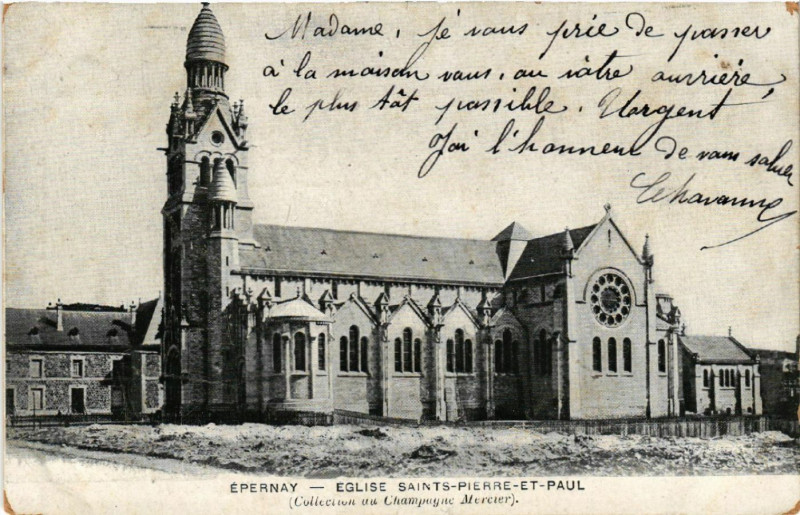 Madame, Je vous prie de passer
à la maison vous, ou vôtre ouvrière,
le plus tôt possible. Urgent
J'ai l'honneur de vous saluer
Chavanne
ÉPERNAY — EGLISE SAINTS-PIERRE-ET-PAUL
(Collection du Champagne Mercier).